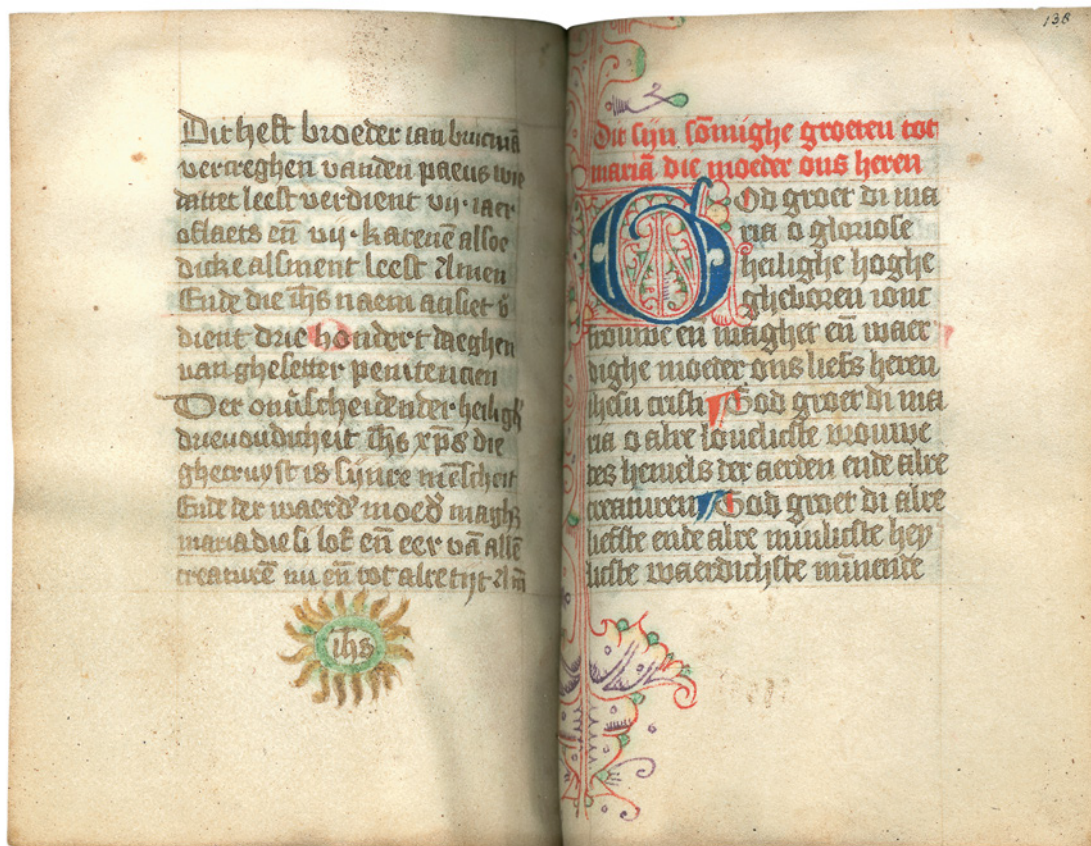 Dit heft broeder ian brucmā
vercreghen vanden paeus wie
dattet leest verdient vij· iaer
oflaets eñ vij· karenē alsoe
dicke alsment leest Amen
Ende die ihs naem ansiet v̄
dient drie hondert daeghen
van ghesetter penitencien
Der onūscheidender heiligh̄
drievoudicheit ihs xp̄s die
ghecruyst is sijnre mēscheit
Ende der waerd̄ moed̄ magh̄
maria die si lof eñ eer vā allē
creaturē nu eñ tot alre tijt Am̄
ihs
138
Dit sijn sōmighe groeten tot
mariā die moeder ons heren
God groet di ma
ria o gloriose
heilighe hoghe
gheboren ionc
frouwe eñ maghet eñ waer
dighe moeder ons liefs heren
ihesu cristi God groet di ma
ria o alre louelicste vrouwe
des hemels der aerden ende alre
creaturen God groet di alre
liefste ende alre minlicste hey
licste waerdichste mīnende